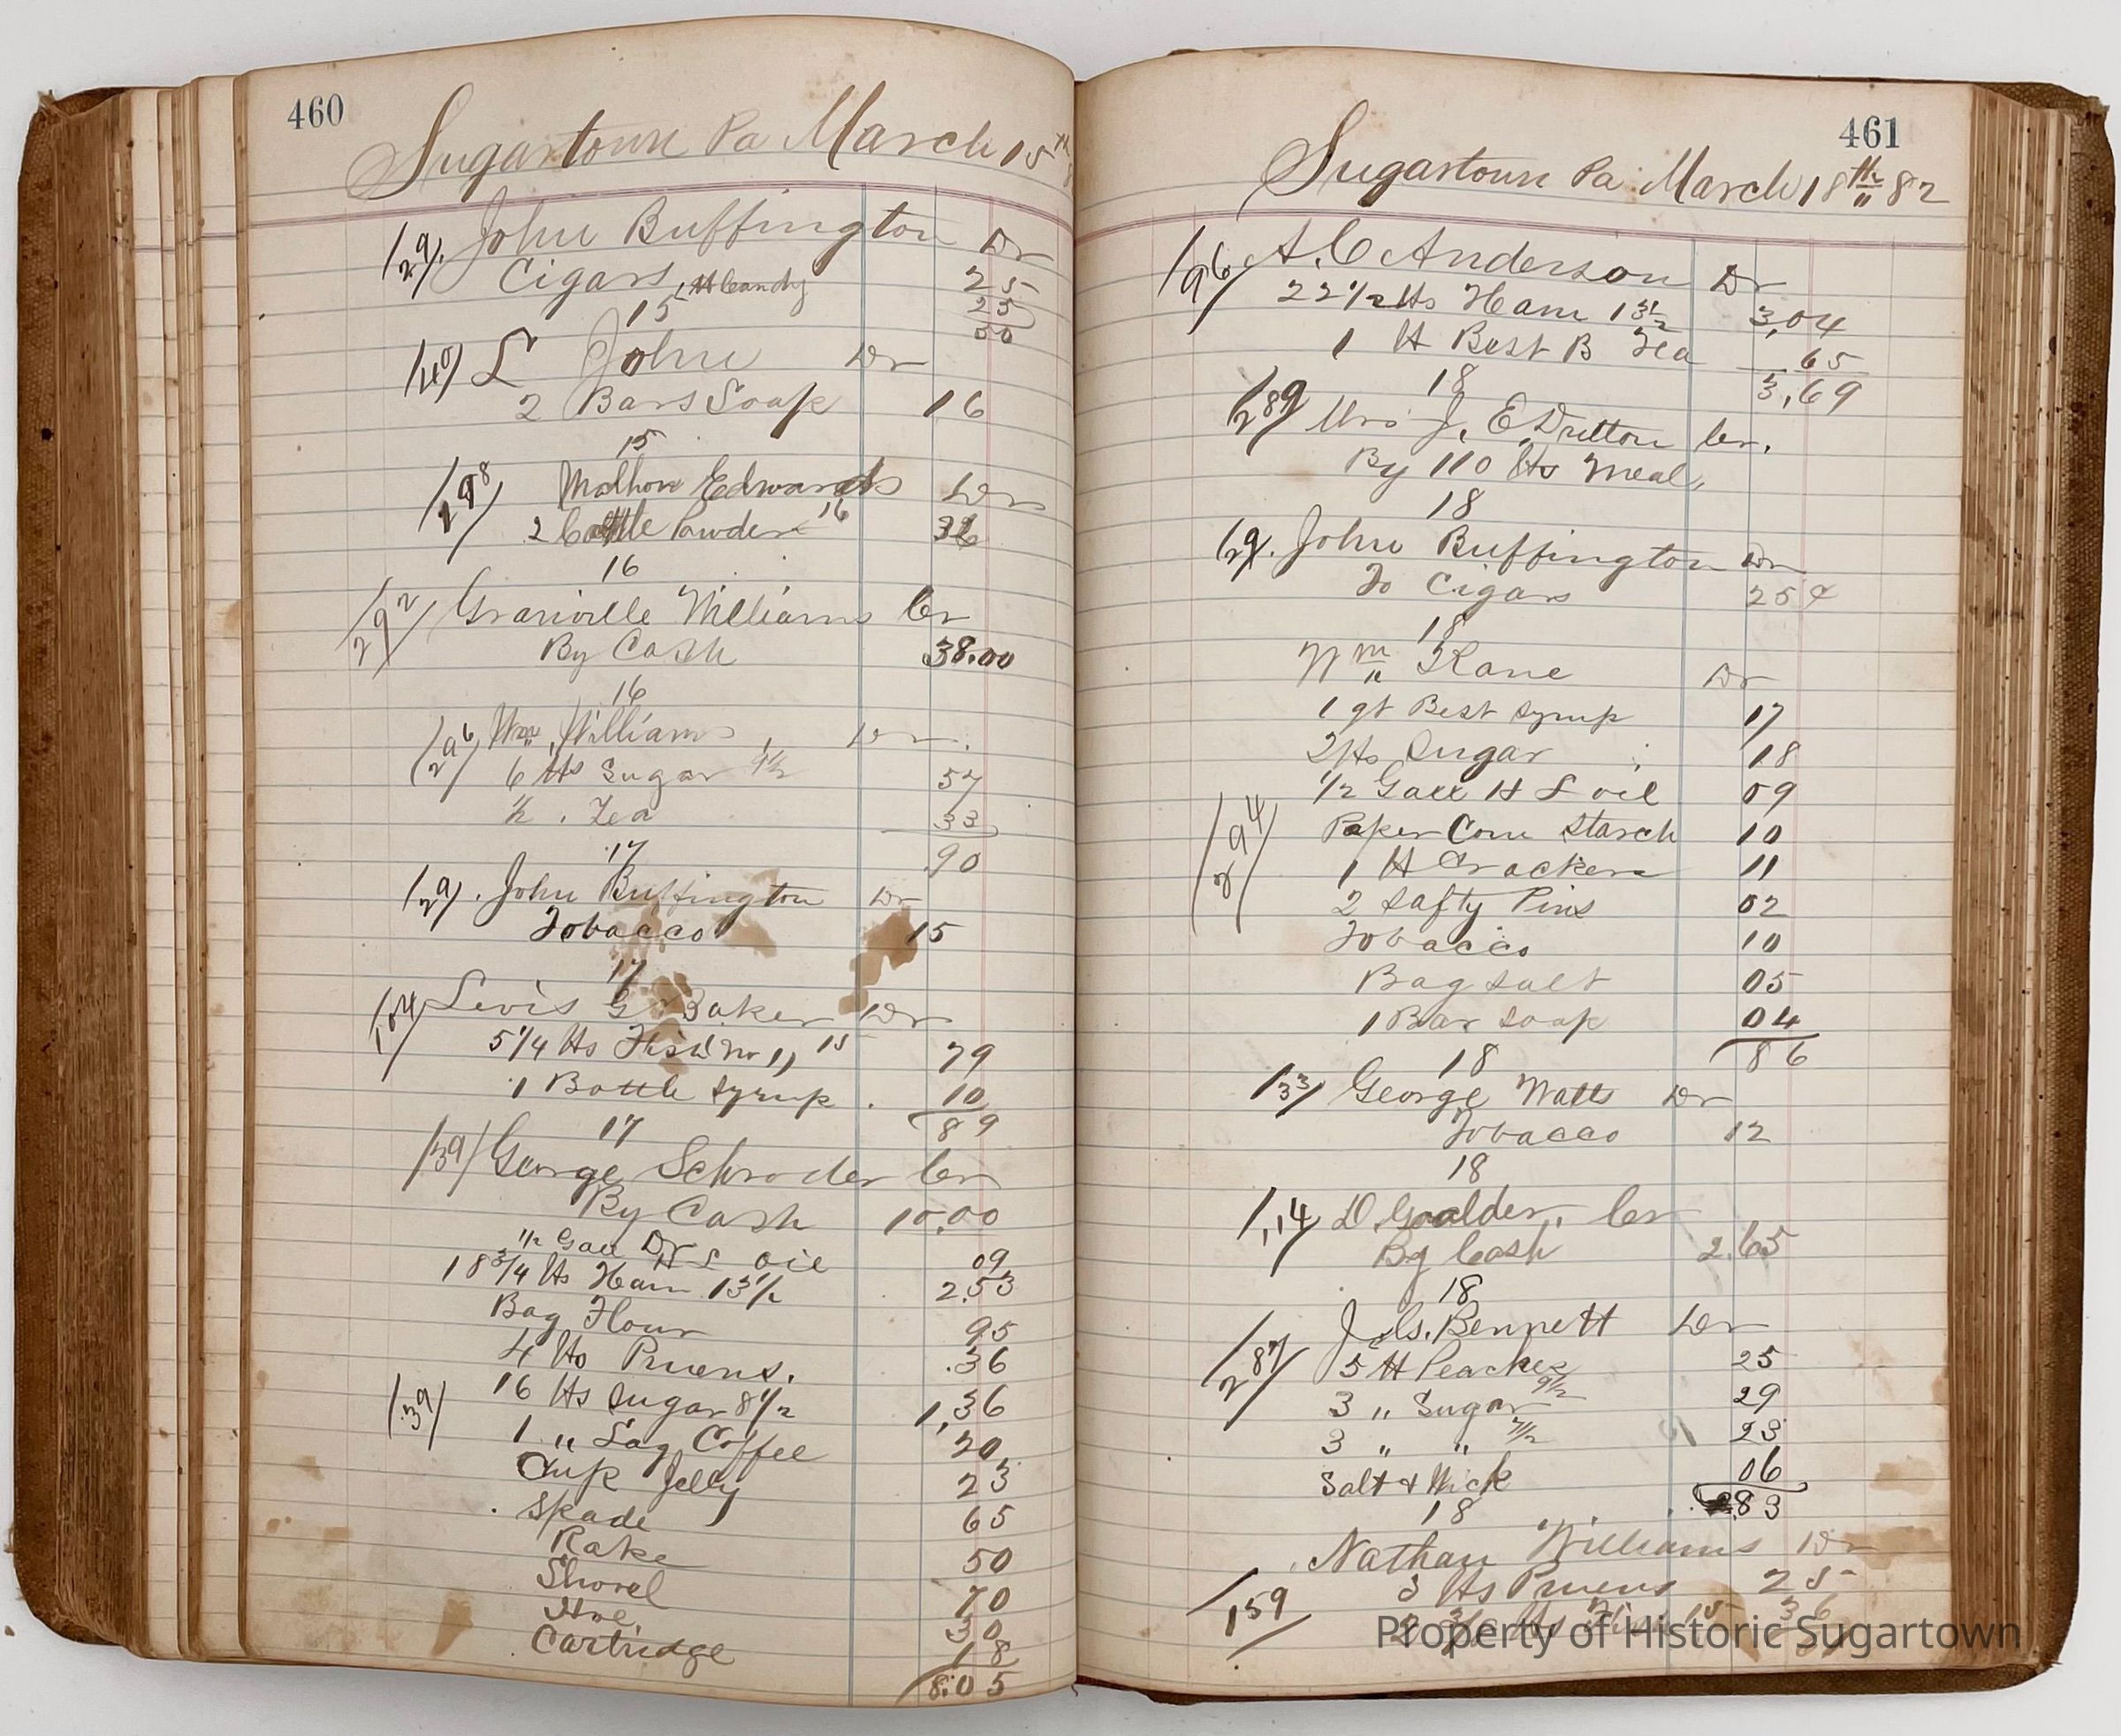 460
Sugartown Pa March 15th
/29/. John Buffington Dr
Cigars, lb Candy 25
15 25
50
/40/ L John Dr
2 Bars Soap 16
15
/198/ Malhon Edwards Dr
2 Cattle Powder 16
16
/292/ Granville Williams Cr
By Cash 38.00
16
/296/ Wm Williams, Dr.
6 lbs Sugar 9 1/2 57
1/2 . Tea 33
17 90
/29/. John Buffington Dr
Tobacco 15
17
/104/ Levis G Baker Dr
5 1/4 lbs Fish No 1, 15 79
1 Bottle Syrup. 10
17 89
/39/ George Schroder Cr
By Cash 10.00
Dr
1/2 Gall H L oil 09
18 3/4 lbs Ham 13 1/2 2.53
Bag Flour 95
4 lbs Pruens. .36
/39/ 16 lbs Sugar 8 1/2 1,36
1 " Lag Coffee 20
Cup Jelly 23
Spade 65
Rake 50
Shovel 70
Hoe 30
Cartridge 18
8.05
461
Sugartown Pa March 18th 82
/96/ A. C Anderson Dr
22 1/2 lbs Ham 13 1/2 3,04
1 lb Best B Tea 65
18 3,69
/289/ Mrs J. E. Dutton Cr.
By 110 lbs Meal,
18
/29/. John Buffington Dr
To Cigars 25¢
18
Wm Kane Dr
1 qt Best Syrup 17
2 lbs Sugar 18
1/2 Gall H L oil 09
/294/ Paper Corn Starch 10
1 lb Crackers 11
2 Safty Pins 02
Tobacco 10
Bag Salt 05
1 Bar Soap 04
18 86
/33/ George Watts Dr
Tobacco 12
18
/114/ D. Goalder, Cr
By Cash 2.65
18
J. G. Bennett Dr
/287/ 5 lb Peaches 25
3 " Sugar 9 1/2 29
3 " " 7 1/2 23
Salt & Wick 06
18 83
Nathan Williams Dr
/159/ 3 lbs Pruens 25
lbs 15 36
Property of Historic Sugartown